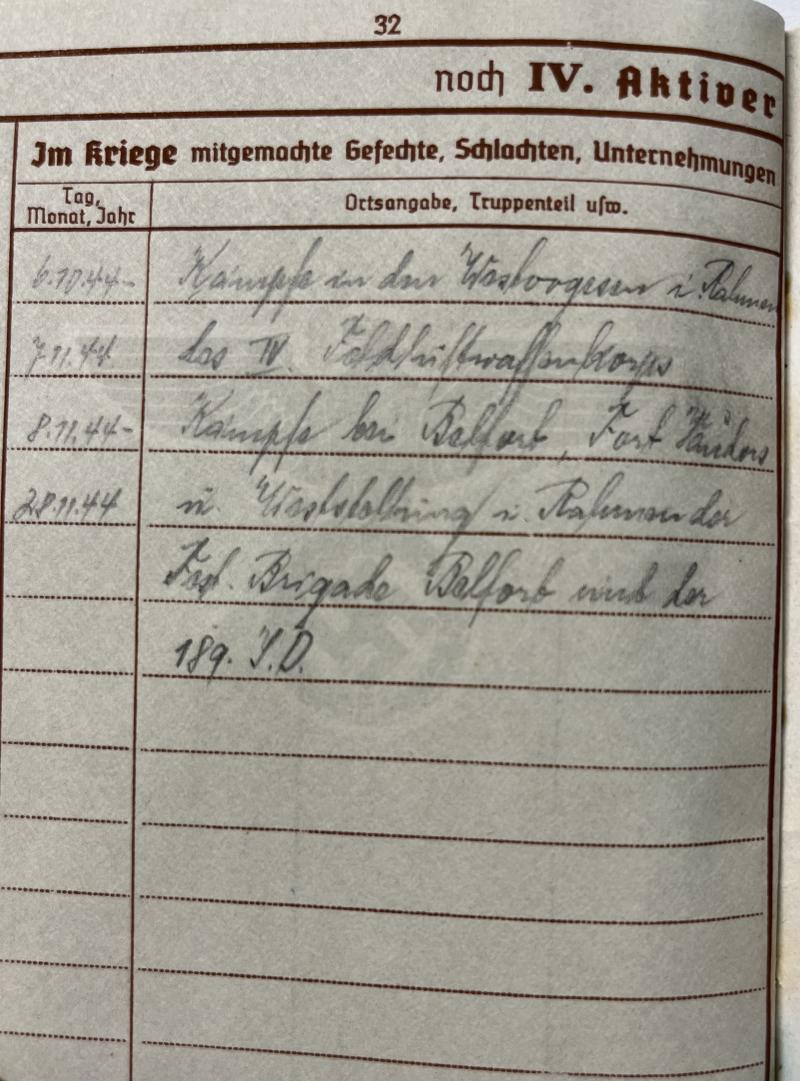 32
noch IV. Aktiver
Im Kriege mitgemachte Gefechte, Schlachten, Unternehmungen
Tag, Monat, Jahr
Ortsangabe, Truppenteil usw.
6.10.44- Kämpfe in den Westvogesen i. Rahmen
7.11.44 des IV. Feldluftwaffenkorps
8.11.44- Kämpfe bei Belfort, Fort
28.11.44 u. Weststellung i. Rahmen der
Fest. Brigade Belfort und der
189. I.D.